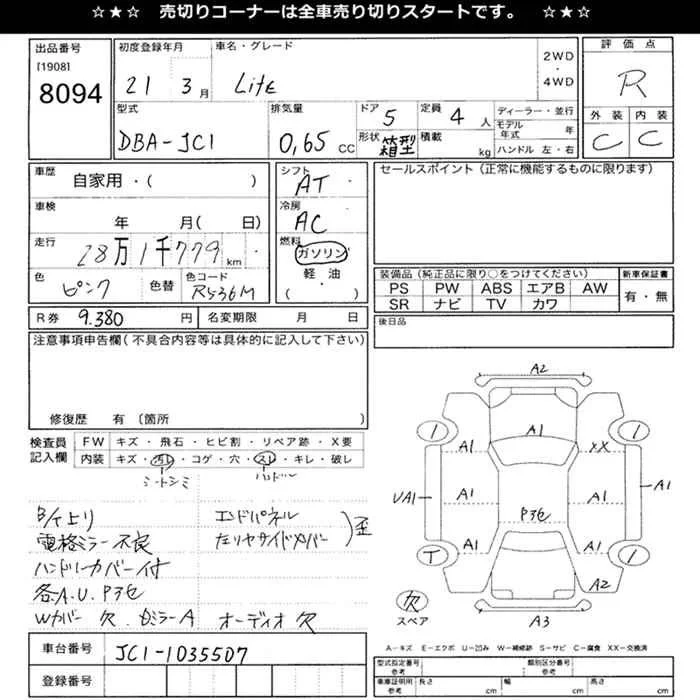 ☆★☆ 売切りコーナーは全車売り切りスタートです。 ☆★☆
出品番号
[1908]
8094
初度登録年月
21 3月
車名・グレード
Life
2WD
・
4WD
評価点
R
外装 内装
C C
型式
DBA-JC1
排気量
0,65 CC
ドア 5
形状 箱型
定員 4 人
積載 kg
ディーラー・並行
モデル年式 年
ハンドル 左・右
車歴
自家用・( )
車検
年 月( 日)
走行
28万1千779 km
色
ピンク
色替
色コード
R536M
シフト
AT ・
冷房
AC
燃料
ガソリン
軽・油
・( )
セールスポイント(正常に機能するものに限ります)
装備品(純正品に限り○をつけてください)
PS PW ABS エアB AW
SR ナビ TV カワ
新車保証書
有・無
R券 9.380 円
名変期限 月 日
後日品
注意事項申告欄(不具合内容等は具体的に記入して下さい)
修復歴 有〔箇所 〕
検査員
記入欄
FW キズ・飛石・ヒビ割・リペア跡・X要
内装 キズ・汚れ・コゲ・穴・スレ・キレ・破レ
シートシミ
ハンドル
B/T上り
電格ミラー不良
ハンドルカバー付
各A.U.Pヌ色
Wカバー 欠
ミラーA
オーディオ欠
エンドパネル
左リヤサイドメンバー
歪
車台番号
JC1-1035507
登録番号
A2
1 A1 1
A1 XX
UA1 A1 A1 A1
Pヌ色
T A1 A1 1
A2
欠
スペア
A3
A-キズ E-エクボ U-凹み W-補修跡 S-サビ C-腐食 XX-交換済
型式指定番号
参考
類別区分番号
参考
車庫証明用
参考
長さ cm
幅 cm
高さ cm